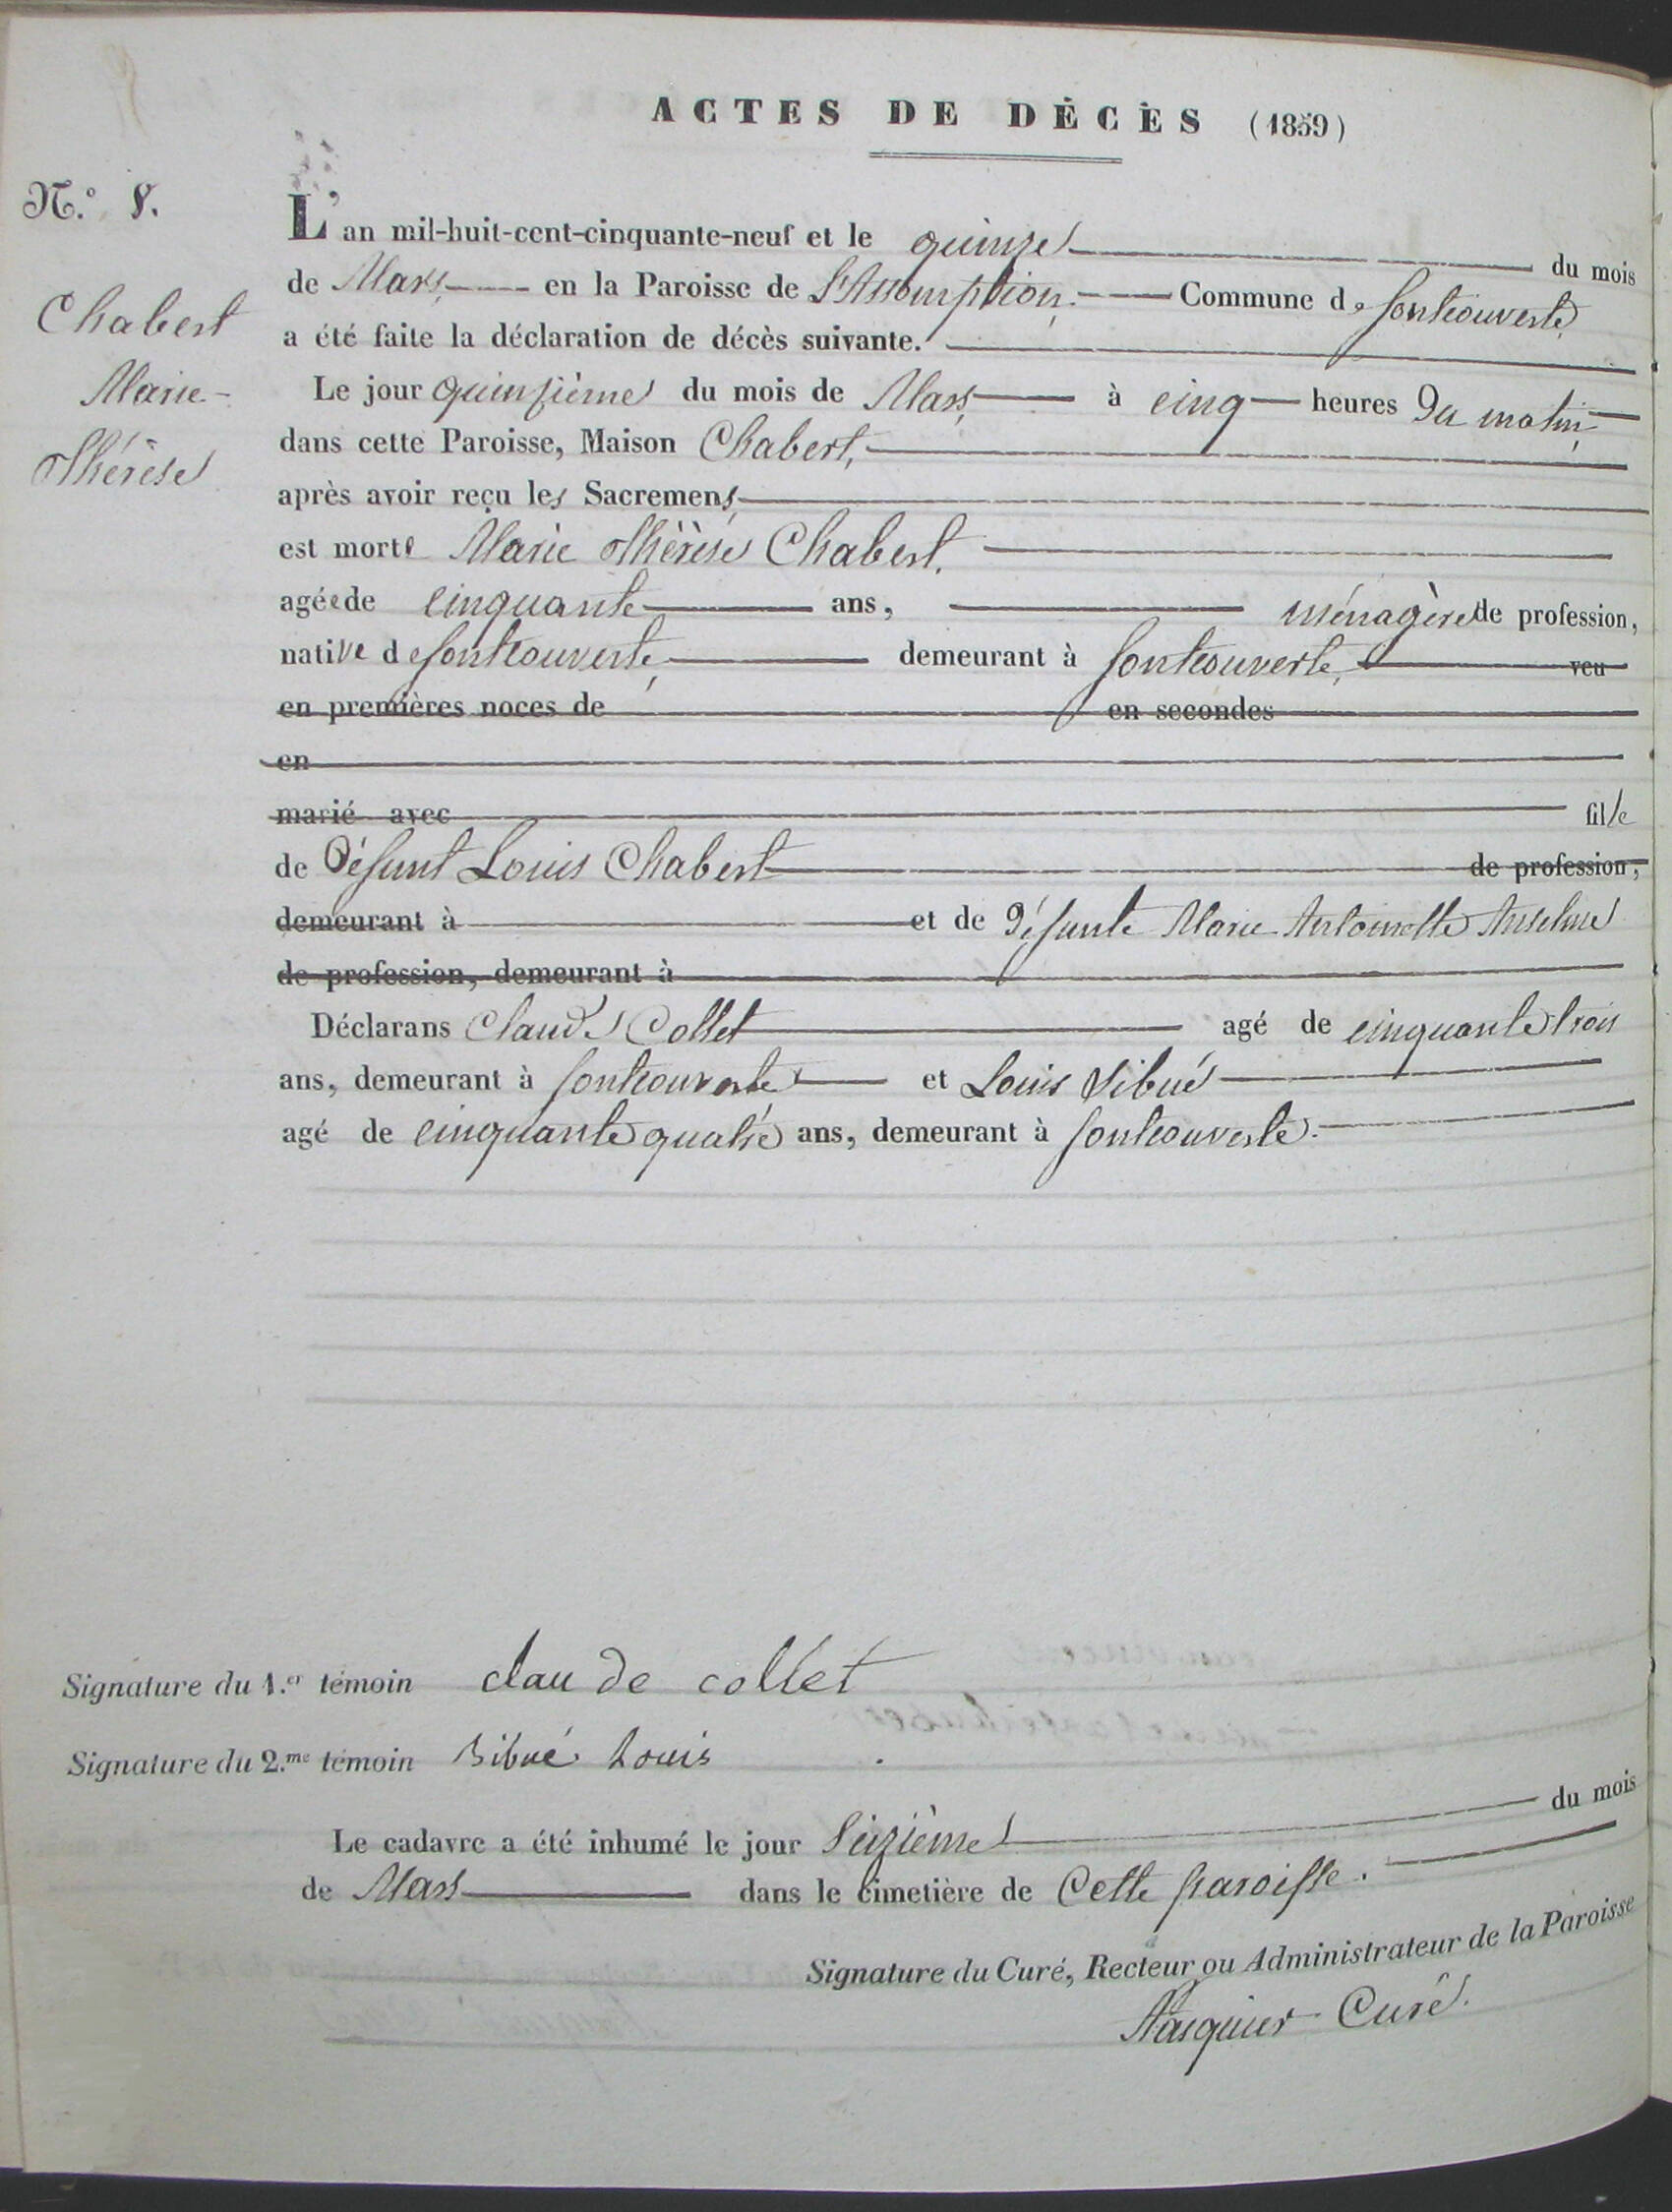 ACTES DE DÉCÈS (1859)
N.º 8.
L'an mil-huit-cent-cinquante-neuf et le quinze du mois
de Mars, en la Paroisse de l'Assomption, Commune de fontcouverte
a été faite la déclaration de décès suivante.
Chabert
Marie-
Thérèse
Le jour quinzième du mois de Mars, à cinq heures du matin,
dans cette Paroisse, Maison Chabert,
après avoir reçu les Sacremens
est morte Marie Thérèse Chabert,
agée de cinquante ans, ménagère de profession,
native de fontcouverte, demeurant à fontcouverte, veu
en premières noces de en secondes
en
marié avec fille
de défunt Louis Chabert de profession,
demeurant à et de défunte Marie Antoinette Anselme
de profession, demeurant à
Déclarans Claude Collet agé de cinquante trois
ans, demeurant à fontcouverte et Louis Sibué
agé de cinquante quatre ans, demeurant à fontcouverte.
Signature du 1.er témoin clau de collet
Signature du 2.me témoin Sibué Louis
Le cadavre a été inhumé le jour Seizième du mois
de Mars dans le cimetière de Cette paroisse.
Signature du Curé, Recteur ou Administrateur de la Paroisse
Curé.